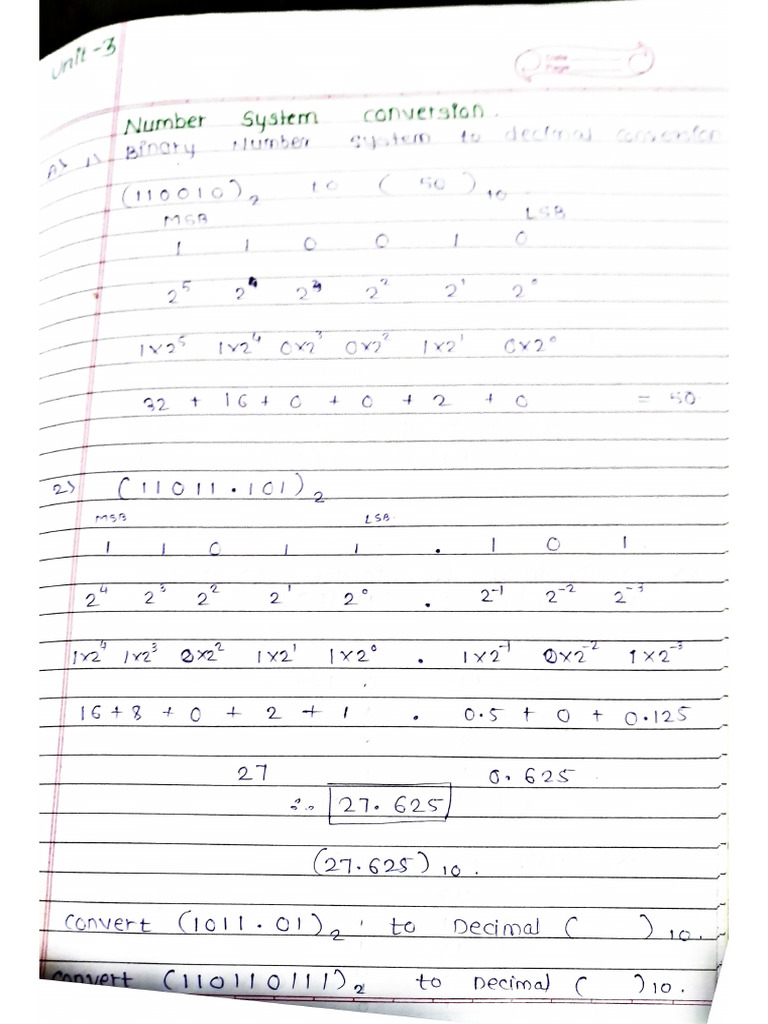 Unit-3
Date
Page
Number System conversion.
A> 1> Binary Number system to decimal conversion
(110010)₂ to ( 50 )₁₀
MSB LSB
1 1 0 0 1 0
2⁵ 2⁴ 2³ 2² 2¹ 2⁰
1x2⁵ 1x2⁴ 0x2³ 0x2² 1x2¹ 0x2⁰
32 + 16 + 0 + 0 + 2 + 0 = 50
2> (11011.101)₂
MSB LSB
1 1 0 1 1 . 1 0 1
2⁴ 2³ 2² 2¹ 2⁰ . 2⁻¹ 2⁻² 2⁻³
1x2⁴ 1x2³ 0x2² 1x2¹ 1x2⁰ . 1x2⁻¹ 0x2⁻² 1x2⁻³
16 + 8 + 0 + 2 + 1 . 0.5 + 0 + 0.125
27 0.625
∴ 27.625
(27.625)₁₀.
convert (1011.01)₂ to Decimal ( )₁₀.
convert (110110111)₂ to Decimal ( )₁₀.